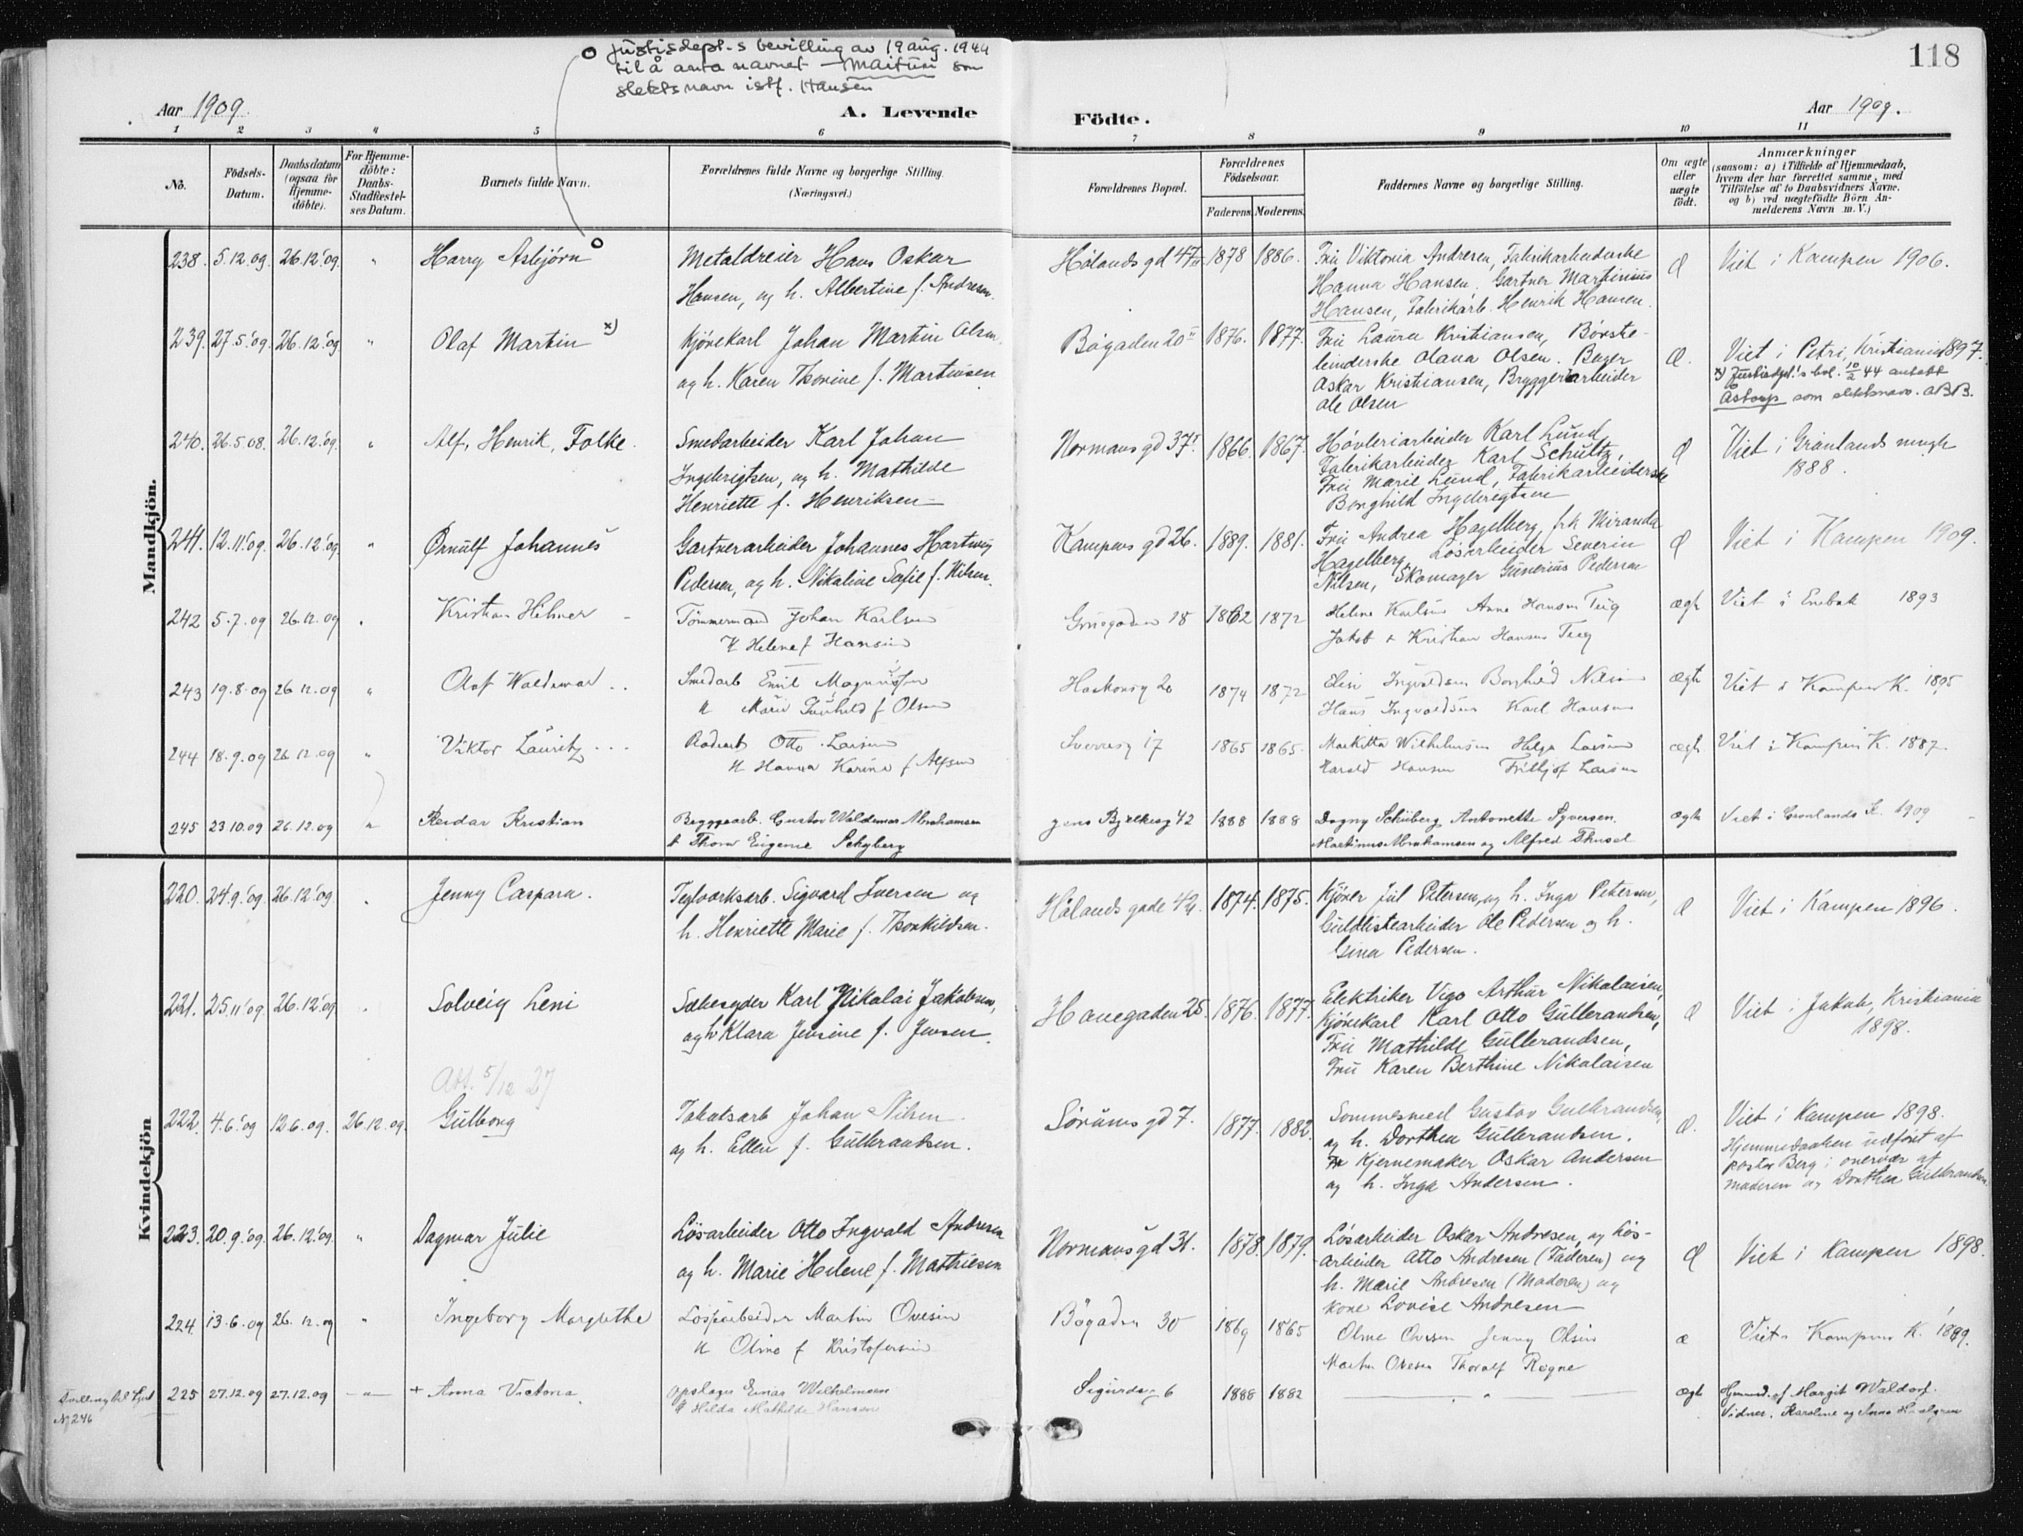 118
Justisdept.s bevilling av 19 aug. 1944
til å anta navnet
som
slektsnavn istf. Hansen
Aar 1909.
A. Levende
Födte.
Aar 1909.
1 2 3 4 5 6 7 8 9 10 11
No.
Födsels-
Datum.
Daabsdatum
(ogsaa for
Hjemme-
döbte).
For Hjemme-
döbte:
Daabs-
Stadfæstel-
ses Datum.
Barnets fulde Navn.
Forældrenes fulde Navne og borgerlige Stilling.
(Næringsvei.)
Forældrenes Bopæl.
Forældrenes
Födselsaar.
Faderens.
Moderens.
Faddernes Navne og borgerlige Stilling.
Om ægte
eller
uægte
födt.
Anmærkninger
(saasom: a) i Tilfælde af Hjemmedaab,
hvem der har forrettet samme, med
Tilföielse af to Daabsvidners Navne.
og b) ved uægtefödte Börn An-
melderens Navn m. V.)
Mandkjön.
238. 5.12.09. 26.12.'09. " Harry Asbjörn
Metaldreier Hans Oskar
Hansen, og h. Albertine f. Andresen.
Hølands gd 47 1878 1886.
Fru Viktoria Andresen, Fabrikarbeiderske
Hanna Hansen. Gartner Martinius
Hansen, Fabrikarb. Henrik Hansen.
Æ Viet i Kampen 1906.
239. 27.5.'09. 26.12.'09. " Olaf Martin x)
Kjörekarl Johan Martin Olsen
og h. Karen Thorine f. Martinsen
Bøgaden 20 II 1876. 1877.
Fru Laura Kristiansen, Børste-
binderske Olana Olsen.
Oskar Kristiansen, Bryggeriarbeider
Ole Olsen
Æ. Viet i Petri, Kristiania 1897.
x) Justisdept.'s bev. 10/2 44 antatt
Astorp som slektsnavn. ABB.
240. 26.5.08. 26.12.'09. " Alf, Henrik, Folke.
Smedarbeider Karl Johan
Ingebrigtsen, og h. Mathilde
Henriette f. Henriksen
Normans gd 37 I 1866. 1867.
Høvleriarbeider Karl Lund
Fabrikarbeider Karl Schultz,
Fru Marie Lund, Fabrikarbeiderske
Borghild Ingebrigtsen
Æ Viet i Grønlands mgh
1888.
241. 12.11.'09. 26.12.'09. " Ørnulf Johannes
Gartnerarbeider Johannes Hartvig
Pedersen, og h. Nikaline Sofie f. Nilsen.
Kampens gd 26. 1889. 1881.
Fru Andrea Hagelberg, frk Miranda
Hagelberg, Løsarbeider Severin
Nilsen, Skomager Gunerius Pedersen
Æ Viet i Kampen 1909.
242 5.7.09 26.12.09 " Kristian Hilmer
Tømmermand Johan Karlsen
H Helene f Hansen
Gruegaden 18 1862 1872
Helene Karlsen Anna Hansen Teig
Jakob & Kristian Hansen Teig
ægte Viet i Enebak 1893
243 19.8.09 26.12.09 " Olaf Waldemar
Smedarb Emil Magnussen
H Marie Gunhild f Olsen
Haakonsg 20 1874 1872
Elise Ingvaldsen Borghild Nilsen
Hans Ingvaldsen Karl Hansen
ægte Viet i Kampens K. 1895
244 18.9.09 26.12.09 " Viktor Lauritz
Otto Larsen
H Hanna Karine f Alfsen
Sverresg 17 1865 1865.
Wilhelmsen Helga Larsen
Harald Hansen Fridtjof Larsen
ægte Viet i Kampen K. 1887.
245 23.10.09 26.12.09 " Reidar Kristian
Byggearb. Gustav Waldemar Abrahamsen
H Thora Eugenie Schyberg
Jens Bjelkesg 42 1888 1888
Dagny Schiberg Antonette Syversen.
Martinus Abrahamsen og Alfred
ægte Viet i Grønlands K. 1909
Kvindekjön
220. 24.9.'09 26.12.'09 " Jenny Caspara.
Teglværksarb. Sigvard Iversen og
h. Henriette Marie f. Thorkildsen.
Hølands gade 42 1874. 1875.
Kjører Jul Petersen, og h. Inga Petersen,
Guldlistearbeider Ole Pedersen og h.
Gina Pedersen.
Æ Viet i Kampen 1896.
221. 25.11.'09 26.12.'09 " Solveig Leni
Sæbesyder Karl Nikolai Jakobsen,
og h Klara Jensine f. Jensen.
Havegaden 25. 1876. 1877.
Elektriker Vigo Arthur Nikolaisen,
Kjörekarl Karl Otto Gulbrandsen,
Fru Mathilde Gulbrandsen,
Fru Karen Berthine Nikolaisen
Æ Viet i Jakob, Kristiania
1898.
Att. 5/12 27
222. 4.6.'09 12.6.09. 26.12.09. Gulborg
Tobaksarb Johan Nilsen
og h. Ellen f. Gulbrandsen.
Sørumsgd 7. 1877. 1882.
Gustav Gulbrandsen,
og h. Dorthea Gulbrandsen.
Kjernemaker Oskar Andersen
og h. Inga Andersen.
Æ. Viet i Kampen 1898.
Hjemmedaaben udført af
pastor Berg i overvær af
moderen og Dorthea Gulbrandsen.
223. 20.9.'09. 26.12.'09. " Dagmar Julie
Løsarbeider Otto Ingvald Andresen
og h. Marie Helene f. Mathiesen
Normansgd 31. 1878. 1879.
Løsarbeider Oskar Andresen, og Løs-
arbeider Otto Andresen (Faderen) og
h. Marie Andresen (Moderen) og
kone Lovise Andresen
Æ Viet i Kampen 1898.
224 13.6.09 26.12.09 " Ingeborg Margrethe
Løsarbeider Martin Ovesen
H Oline f Kristofersen
Bøgaden 30 1869 1865
Oline Ovesen Jenny Olsen
Martin Ovesen Thoralf Rogne
æ Viet i Kampens K. 1889.
Tvilling til Gut
No 246
225 27.12.09 27.12.09 + Anna Victoria
Opslager Einar Wilhelmsen
H Hilda Mathilde Hansen
Sigurdsg 6 1888 1882
"
ægte Hjemmed. af Margit Waldorf.
Vidner. Karoline og Anna